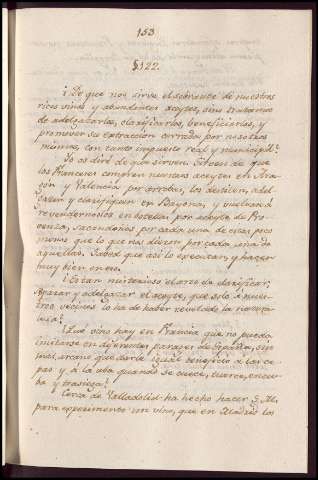 153
§122.
¿De que nos sirve el sobrante de nuestros
ricos vinos y abundantes aceytes, sino tratamos
de adelgazarlos, clarificarlos, beneficiarlos, y
promover su extraccion cerrada por nosotros
mismos, con tanto impuesto real y municipal?
Yo os diré de que sirven. Sirven de que
los Franceses compren nuestros aceytes en Ara-
gón y Valencia por arrobas, los destilen, adel-
gazen y clarifiquen en Bayona, y vuelvan á
revendernoslos en botellas por aceyte de Pro-
venza, sacandonos por cada una de estas poco
menos que lo que nos dieron por cada una de
aquellas. Sabed que asi lo executan, y hazen
muy bien en eso.
¿Es tan misterioso el arte de clarificar,
apurar y adelgazar el aceyte, que solo á nues-
tros vecinos lo ha de haber revelado la natura-
leza?
¿Qué vino hay en Francia que no pueda
imitarse en diferentes parages de España, sin
mas arcano que darle igual beneficio á las ce-
pas y á la uba quando se cuece, tuerce, encu-
ba y trasiega?
Cerca de Valladolid ha hecho hacer S. M.
para experimento un vino, que en Madrid los